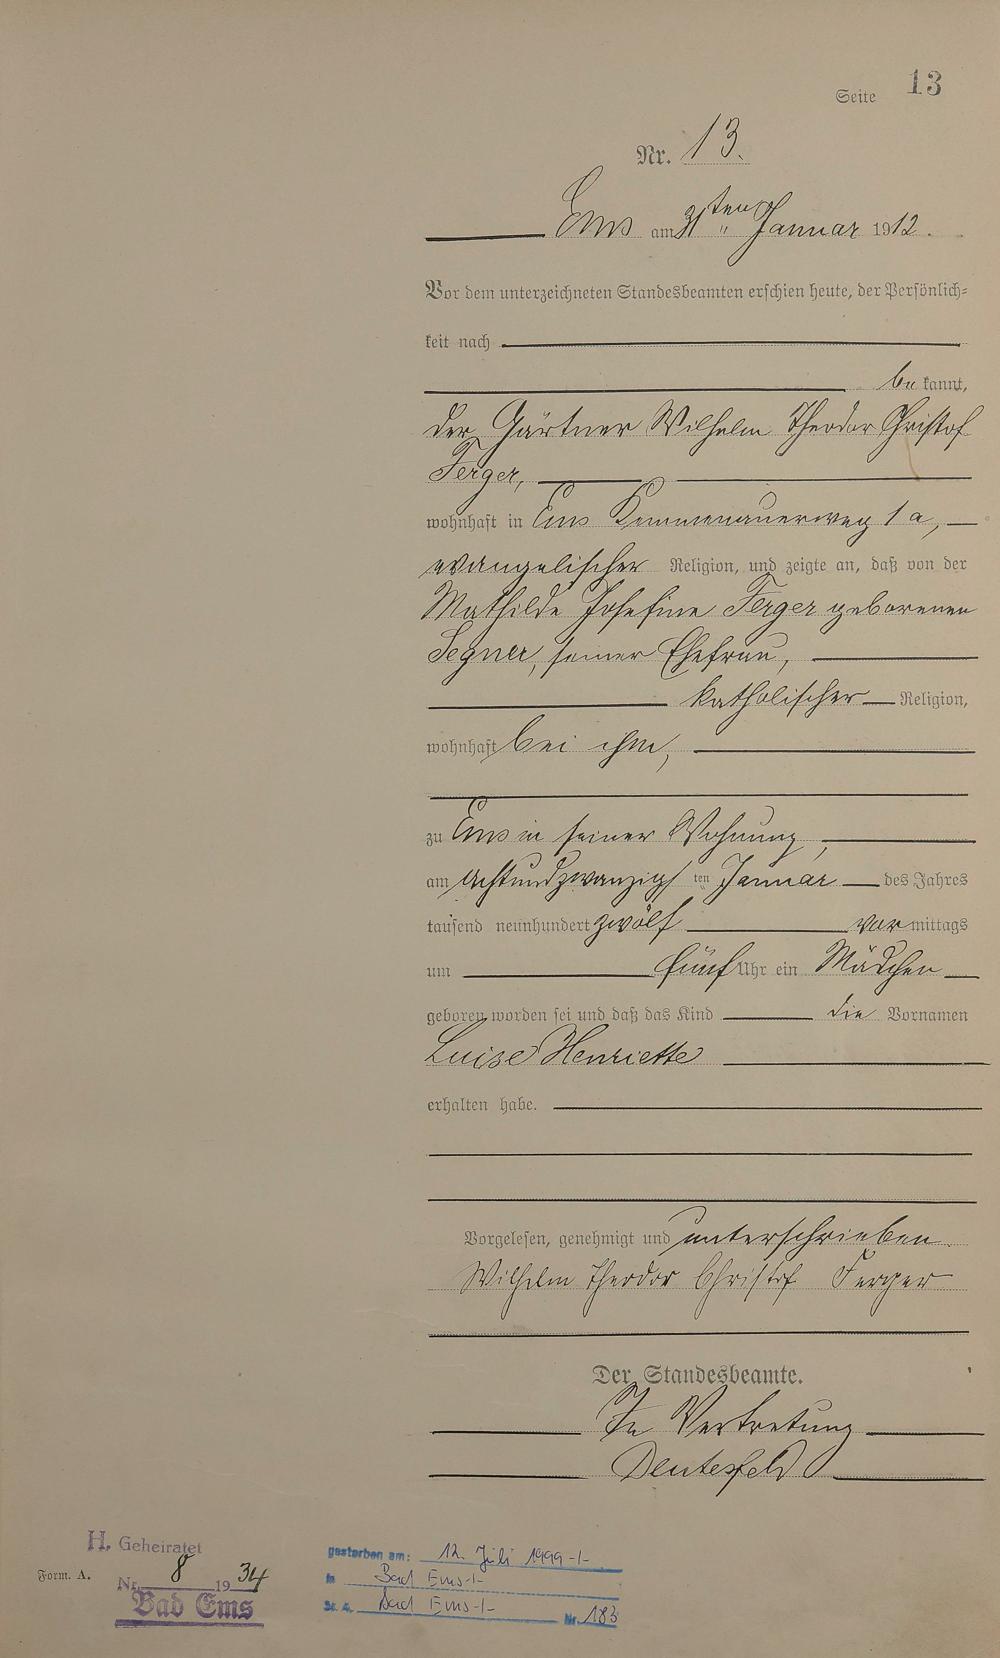 Seite 13
Nr. 13.
Ems am 31ten Januar 1912.
Vor dem unterzeichneten Standesbeamten erschien heute, der Persönlich-
keit nach
be kannt,
der Gärtner Wilhelm Theodor Christof
Ferger,
wohnhaft in Ems Kemmenauerweg 1a,
evangelischer Religion, und zeigte an, daß von der
Mathilde Josefine Ferger geborenen
Segner, seiner Ehefrau,
katholischer Religion,
wohnhaft bei ihm,
zu Ems in seiner Wohnung,
am achtundzwanzigs ten Januar des Jahres
tausend neunhundert zwölf vor mittags
um fünf Uhr ein Mädchen
geboren worden sei und daß das Kind die Vornamen
Luise Henriette
erhalten habe.
Vorgelesen, genehmigt und unterschrieben.
Wilhelm Theodor Christof Ferger
Der Standesbeamte.
In Vertretung
H. Geheiratet
Form. A.
Nr. 8 1934
Bad Ems
gestorben am: 12. Juli 1999-/-
in Bad Ems-/-
St. A. Bad Ems-/- Nr. 183